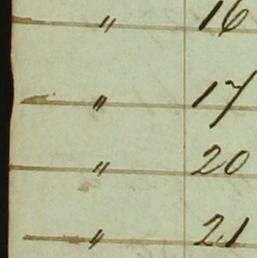 " 16
" 17
" 20
" 21